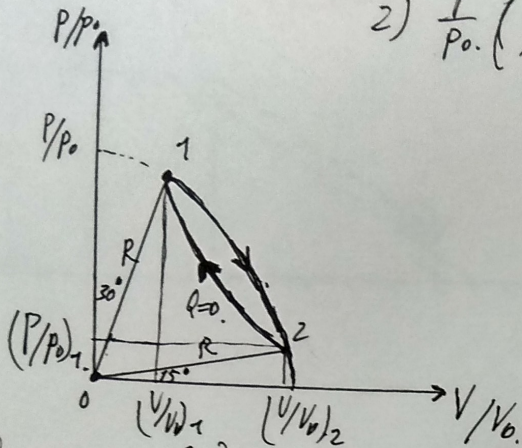 P/p₀
2) 1/p₀. (
P/p₀
1
R
30°
Q=0.
(P/p₀)₁.
R
2
15°
0
(V/V₀)₁
(V/V₀)₂
V/V₀.